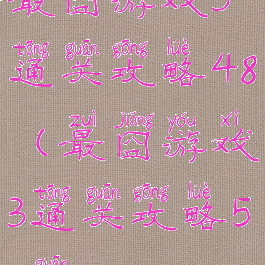 最囧游戏3
tōng guān gōng lüè
通关攻略48
zuì jiǒng yóu xì
(最囧游戏
tōng guān gōng lüè
3通关攻略5
guān